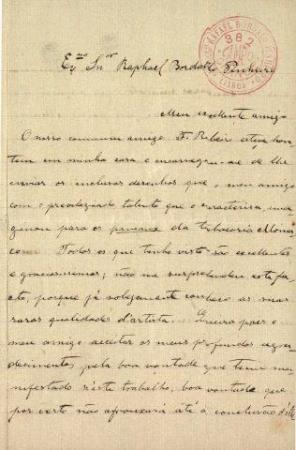 Exmo Snr Raphael Bordallo Pinheiro
Meu excellente amigo
O nosso commum amigo F. Ribeiro esteve hon
tem em minha casa e encarregou-se de lhe
enviar os inclusos desenhos que o meu amigo
com o prodigioso talento que o caracterisa, ima
ginou para os da Tabacaria Mónaco
Todos os que tenho visto são excellentes
e graciosissimos; não me surprehendeu este fa
cto, porque já sobejamente conheço as suas
raras qualidades d'artista. Queira pois o
meu amigo acceitar os meus profundos agra
decimentos, pela boa vontade que tem ma
nifestado n'este trabalho, boa vontade que
por certo não afrouxará até á conclusão d'elle